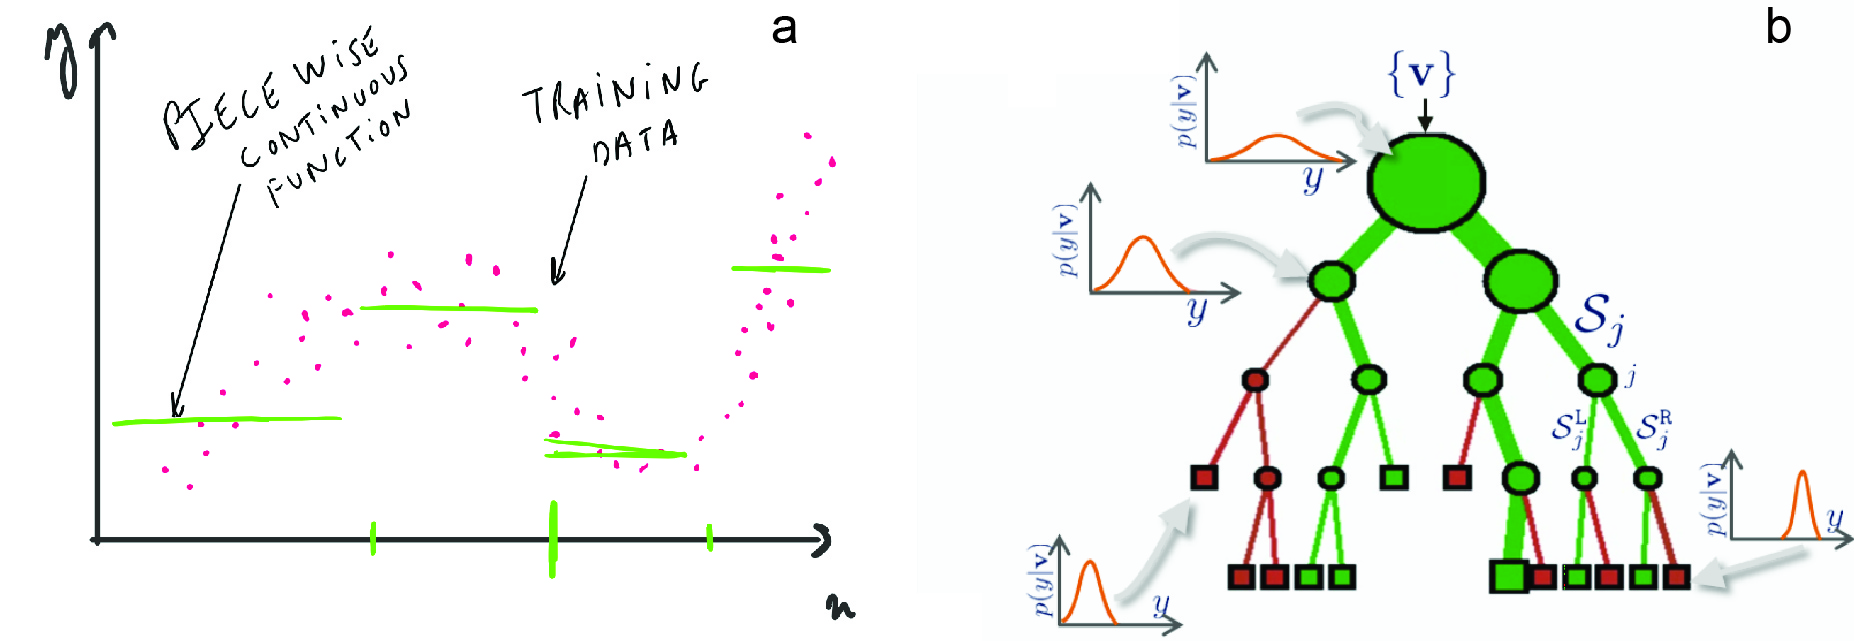 a
y
PIECE WISE
CONTINUOUS
FUNCTION
TRAINING
DATA
x
b
{v}
p(y|v)
y
p(y|v)
y
S_j
j
S_j^L
S_j^R
p(y|v)
y
p(y|v)
y